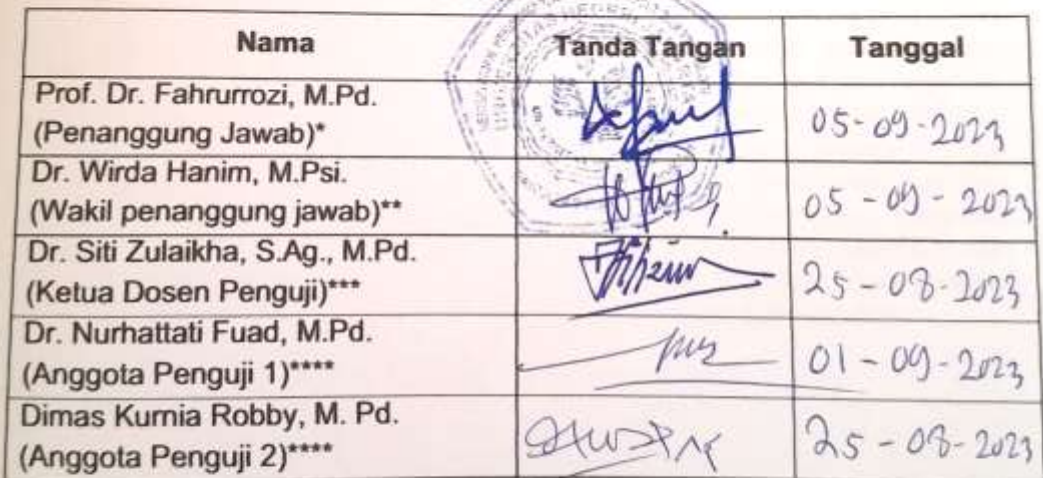 Nama Tanda Tangan Tanggal
Prof. Dr. Fahrurrozi, M.Pd.
(Penanggung Jawab)* 05-09-2023
Dr. Wirda Hanim, M.Psi.
(Wakil penanggung jawab)** 05-09-2023
Dr. Siti Zulaikha, S.Ag., M.Pd.
(Ketua Dosen Penguji)*** 25-08-2023
Dr. Nurhattati Fuad, M.Pd.
(Anggota Penguji 1)**** 01-09-2023
Dimas Kurnia Robby, M. Pd.
(Anggota Penguji 2)**** 25-08-2023